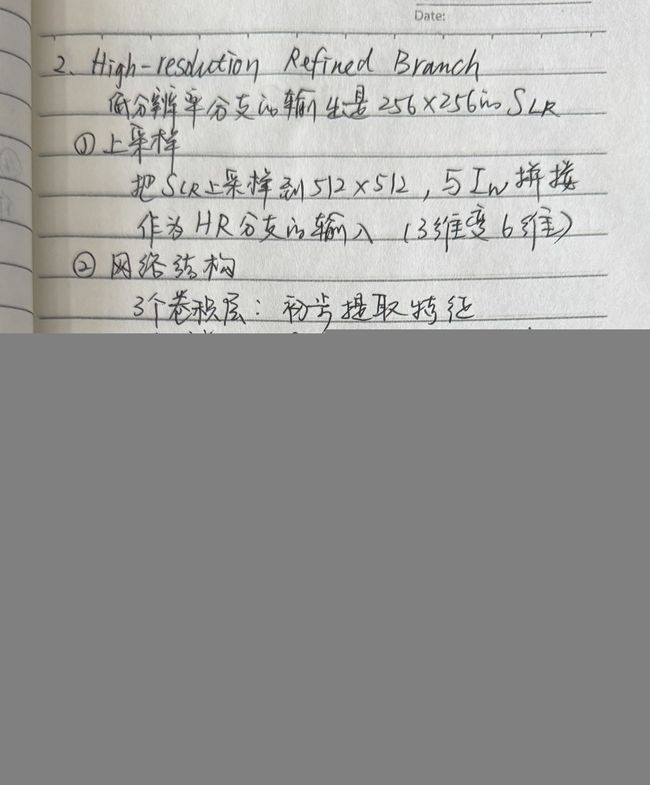 Date:
2. High-resolution Refined Branch
低分辨率分支的输出是256×256的SLR
①上采样
把SLR上采样到512×512，与Iw拼接
作为HR分支的输入（3维变6维）
②网络结构
3个卷积层：初步提取特征